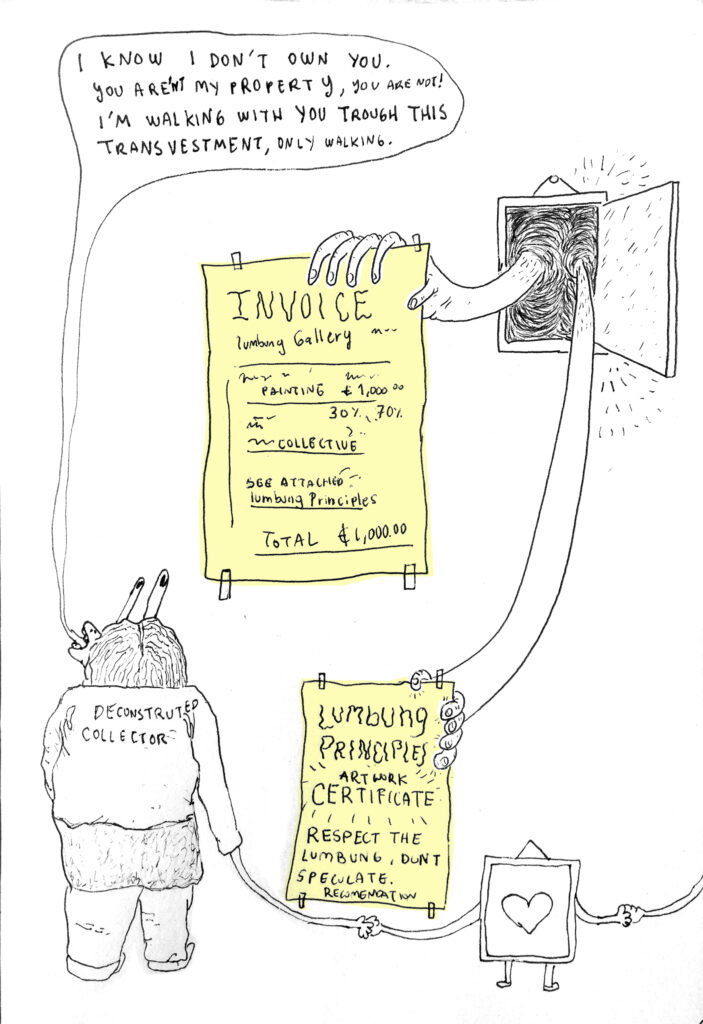 I KNOW I DON'T OWN YOU.
YOU AREN'T MY PROPERTY, YOU ARE NOT!
I'M WALKING WITH YOU TROUGH THIS
TRANSVESTMENT, ONLY WALKING.
INVOICE
lumbung Gallery
PAINTING € 1,000.00
30% 70%
COLLECTIVE
SEE ATTACHED
lumbung Principles
TOTAL € 1,000.00
DECONSTRUTED
COLLECTOR
Lumbung
PRINCIPLES
ARTWORK
CERTIFICATE
RESPECT THE
LUMBUNG, DONT
SPECULATE.
RECOMENCATION